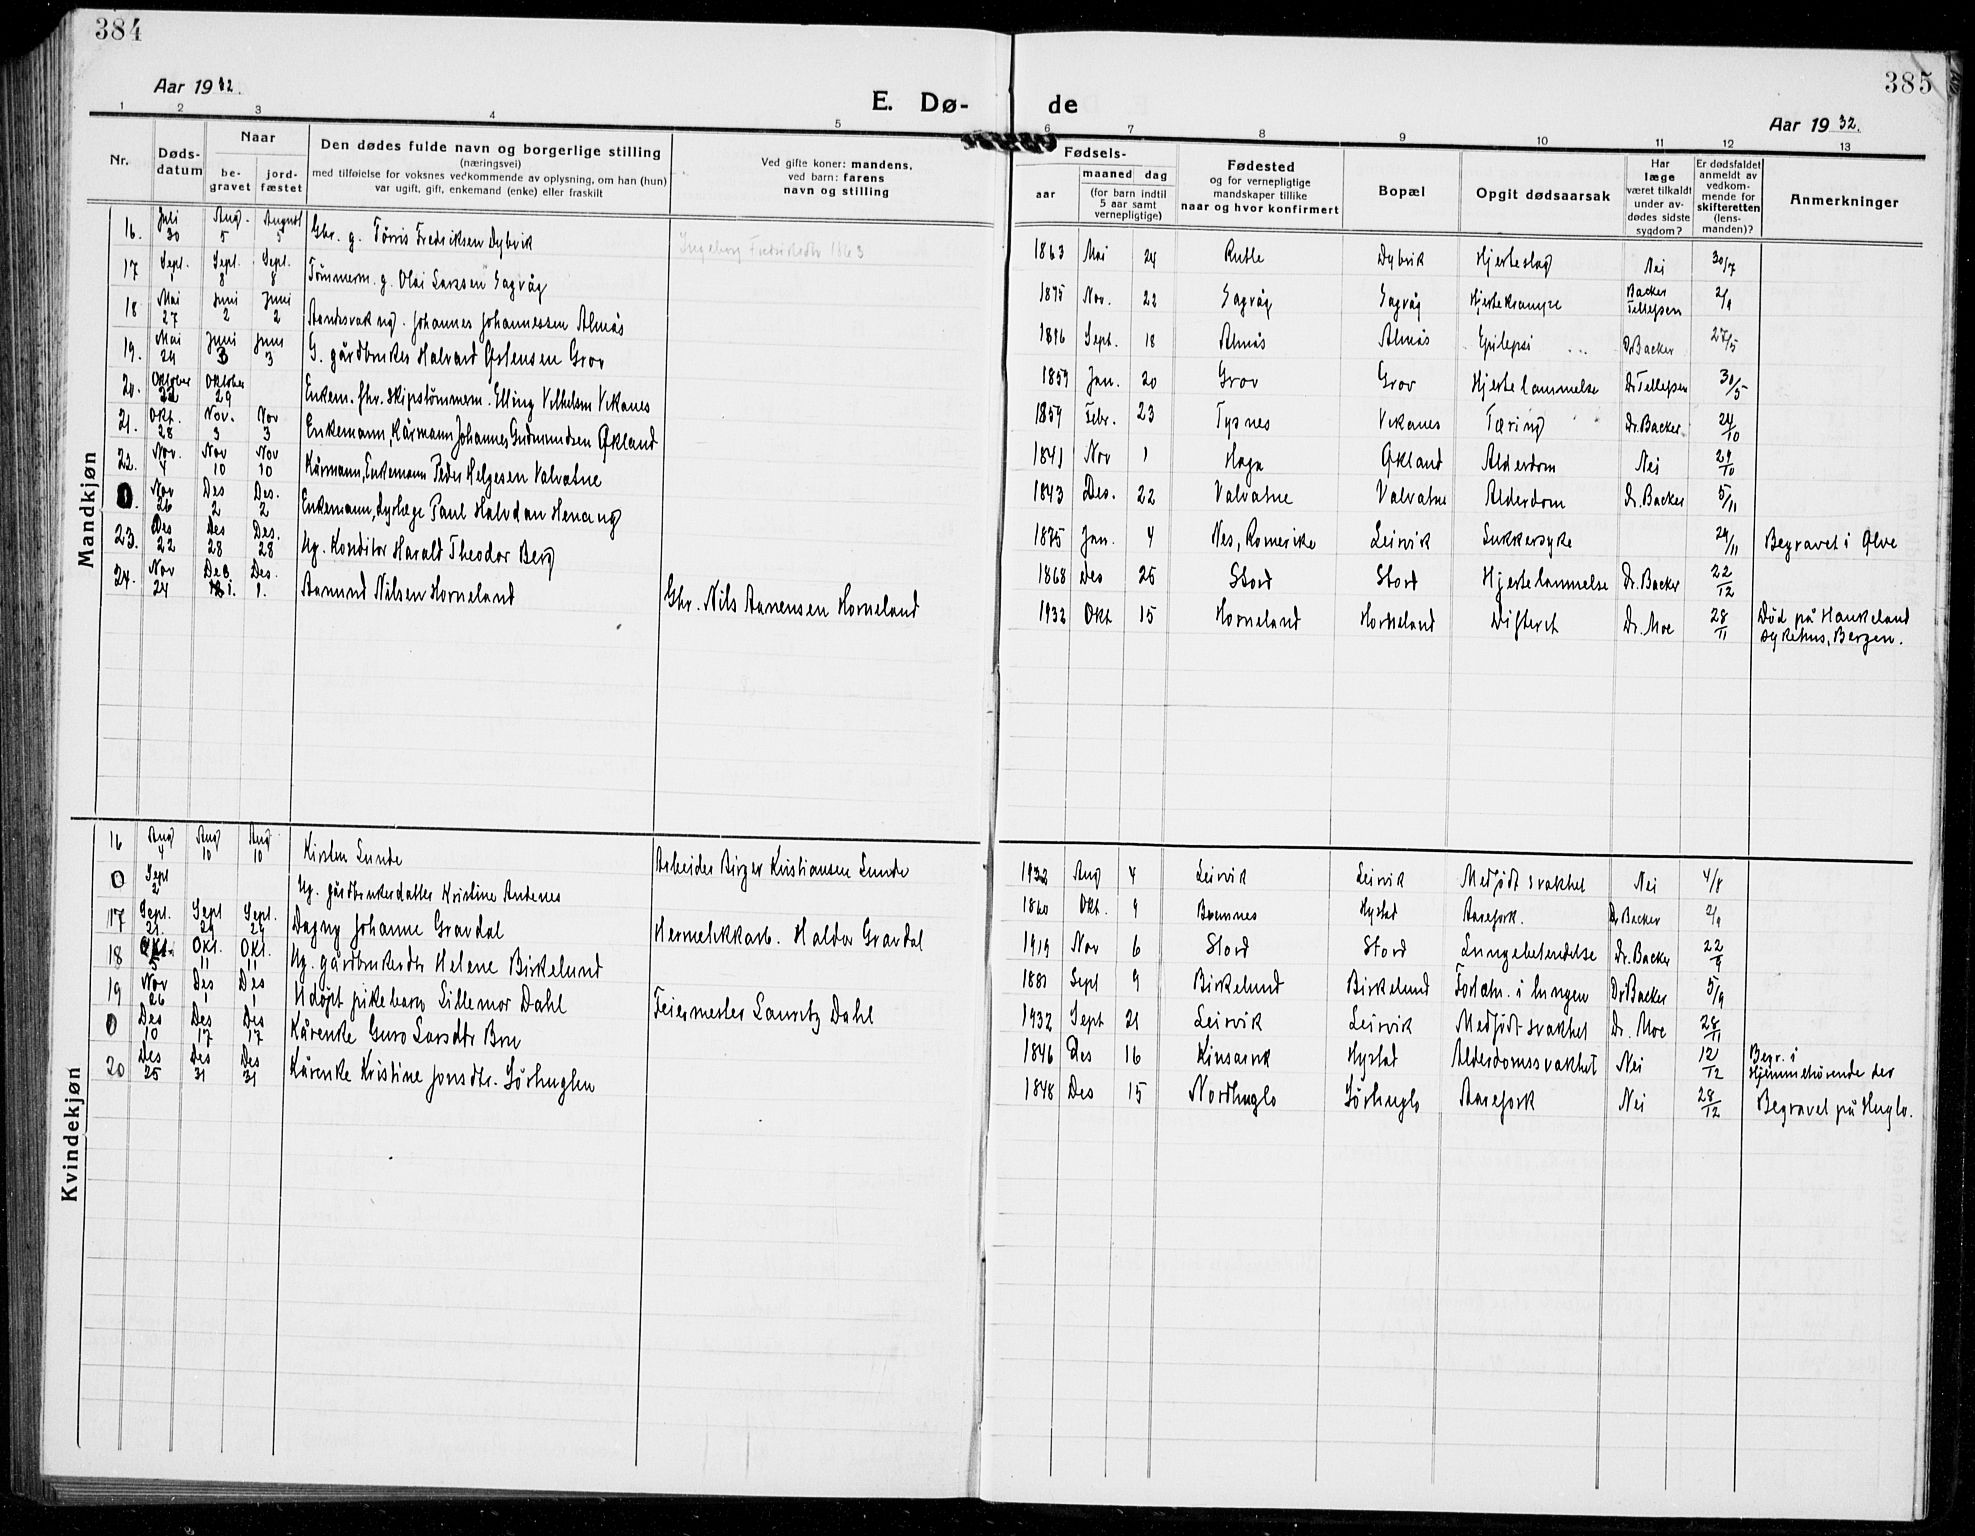 384
385
Aar 1932.
E. Dø-
de
Aar 1932.
1 2 3 4 5 6 7 8 9 10 11 12 13
Nr.
Døds-
datum
Naar
be-
gravet
jord-
fæstet
Den dødes fulde navn og borgerlige stilling
(næringsvei)
med tilføielse for voksnes vedkommende av oplysning, om han (hun)
var ugift, gift, enkemand (enke) eller fraskilt
Ved gifte koner: mandens,
ved barn: farens
navn og stilling
Fødsels-
aar
maaned dag
(for barn indtil
5 aar samt
vernepligtige)
Fødested
og for vernepligtige
mandskaper tillike
naar og hvor konfirmert
Bopæl
Opgit dødsaarsak
Har
læge
været tilkaldt
under av-
dødes sidste
sygdom?
Er dødsfaldet
anmeldt av
vedkom-
mende for
skifteretten
(lens-
manden)?
Anmerkninger
Mandkjøn
16. Juli 30 Aug. 5 August 5 Gbr. g. Tørris Fredriksen Dybvik Ingeborg Fredriksdtr 1863 1863 Mai 24 Rutle Dybvik Hjerteslag Nei 30/7
17 Sept. 1 Sept. 8 Sept. 8 Tømmerm. g. Olai Larssen Sagvåg 1875 Nov. 22 Sagvåg Sagvåg Hjertekrampe Backer Tellefsen 2/9
18 Mai 27 Juni 2 Juni 2 Åndssvak ug. Johannes Johannessen Almås 1896 Sept. 18 Almås Almås Epilepsi Dr Backer 27/5
19. Mai 29 Juni 3 Juni 3 G. gårdbruker Halvard Østensen Grov 1859 Jan. 20 Grov Grov Hjertelammelse Dr Tellefsen 30/5
20. Oktober 22 Oktober 29 Enkem. fhv. skipstømmerm. Elling Vilhelm Vikanes 1859 Febr. 23 Tysnes Vikanes Tæring Dr. Backer 24/10
21. Okt. 28 Nov. 3 Nov 3 Enkemann, Kårmann Johannes Gudmundsen Økland 1841 Nov 1 Haga Økland Alderdom Nei 29/10
22. Nov. 4 Nov 10 Nov 10 Kårmann, Enkemann Peder Helgesen Valvatne 1843 Des. 22 Valvatne Valvatne Alderdom Dr. Backer 5/11
0. Nov 26 Des 2 Des. 2 Enkemann, dyrlæge Paul Halvdan Henang 1875 Jan. 4 Nes, Romerike Leirvik Sukkersyke 29/11 Begravet i Ølve
23. Des 22 Des 28 Des. 28 Ug. Konditor Harald Theodor Berg 1868 Des 25 Stord Stord Hjertelammelse Dr. Backer 22/12
24. Nov 24 Des. 1. Des. 1. Aamund Nilsen Horneland Gbr. Nils Aanensen Horneland 1932 Okt 15 Horneland Horneland Difterit Dr. Moe 28/11 Død på Haukeland
sykehus, Bergen.
Kvindekjøn
16 Aug 4 Aug 10 Aug 10 Kirsten Lunde Arbeider Birger Kristiansen Lunde 1932 Aug 4 Leirvik Leirvik Medfødt svakhet Nei 4/8
0 Sept 2 Ug. gårdbrukerdatter Kristine Andenes 1860 Okt. 9 Bremnes Hystad Aarefork. Dr Backer 2/9
17 Sept. 21. Sept 29 Sept. 29 Dagny Johanne Gravdal Hermetikkarb. Haldor Gravdal 1919 Nov 6 Stord Stord Lungebetendelse Dr. Backer 22/9
18 Okt. 5 Okt. 11 Okt. 11 Ug. gårdbrukerdtr Helene Birkelund 1881 Sept 9 Birkelund Birkelund Forkøln. i lungen Dr Backer 5/9
19 Nov 26 Des 1 Des 1 Udøpt pikebarn Lillemor Dahl Feiermester Lauritz Dahl 1932 Sept 21 Leirvik Leirvik Medfødt svakhet Dr. Moe 28/11
0 Des 10 Des 17 Des 17 Kårenke Guro Larsdtr Bru 1846 Des 16 Kinsarvik Hystad Alderdomssvakhet Nei 12/12 Begr. i
Hjemmehørende der
20 Des 25 Des 31 Des 31 Kårenke Kristine Jonsdtr. Sørhuglen 1848 Des 15 Nordhuglo Sørhuglo Aarefork Nei 28/12 Begravet på Huglo.